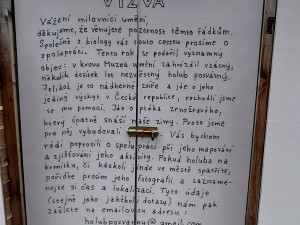 VÝZVA
Vážení milovníci umění,
děkujeme, že věnujete pozornost těmto řádkům.
Společně s biology vás touto cestou prosíme o
spolupráci. Tento rok se podařil významný
objev: v krovu Muzea umění zahnízdil vzácný,
několik desítek let nezvěstný holub posvátný.
Jelikož je to nádherné zvíře a jde o jeho
jediný výskyt v České republice, rozhodli jsme
se mu pomoci. Jde o ptáka zrnožravého,
který špatně snáší naše zimy. Proto jsme
pro něj vybudovali Vás bychom
rádi poprosili o spolupráci při jeho mapování
a zjišťování jeho aktivity. Pokud holuba na
krmítku, či kdekoli jinde ve městě spatříte,
pořiďte prosím jeho fotografii a zazname-
nejte si čas a lokalizaci. Tyto údaje
(stejně jako jakékoli dotazy) nám pak
zašlete na emailovou adresu:
holubposvatny@gmail.com